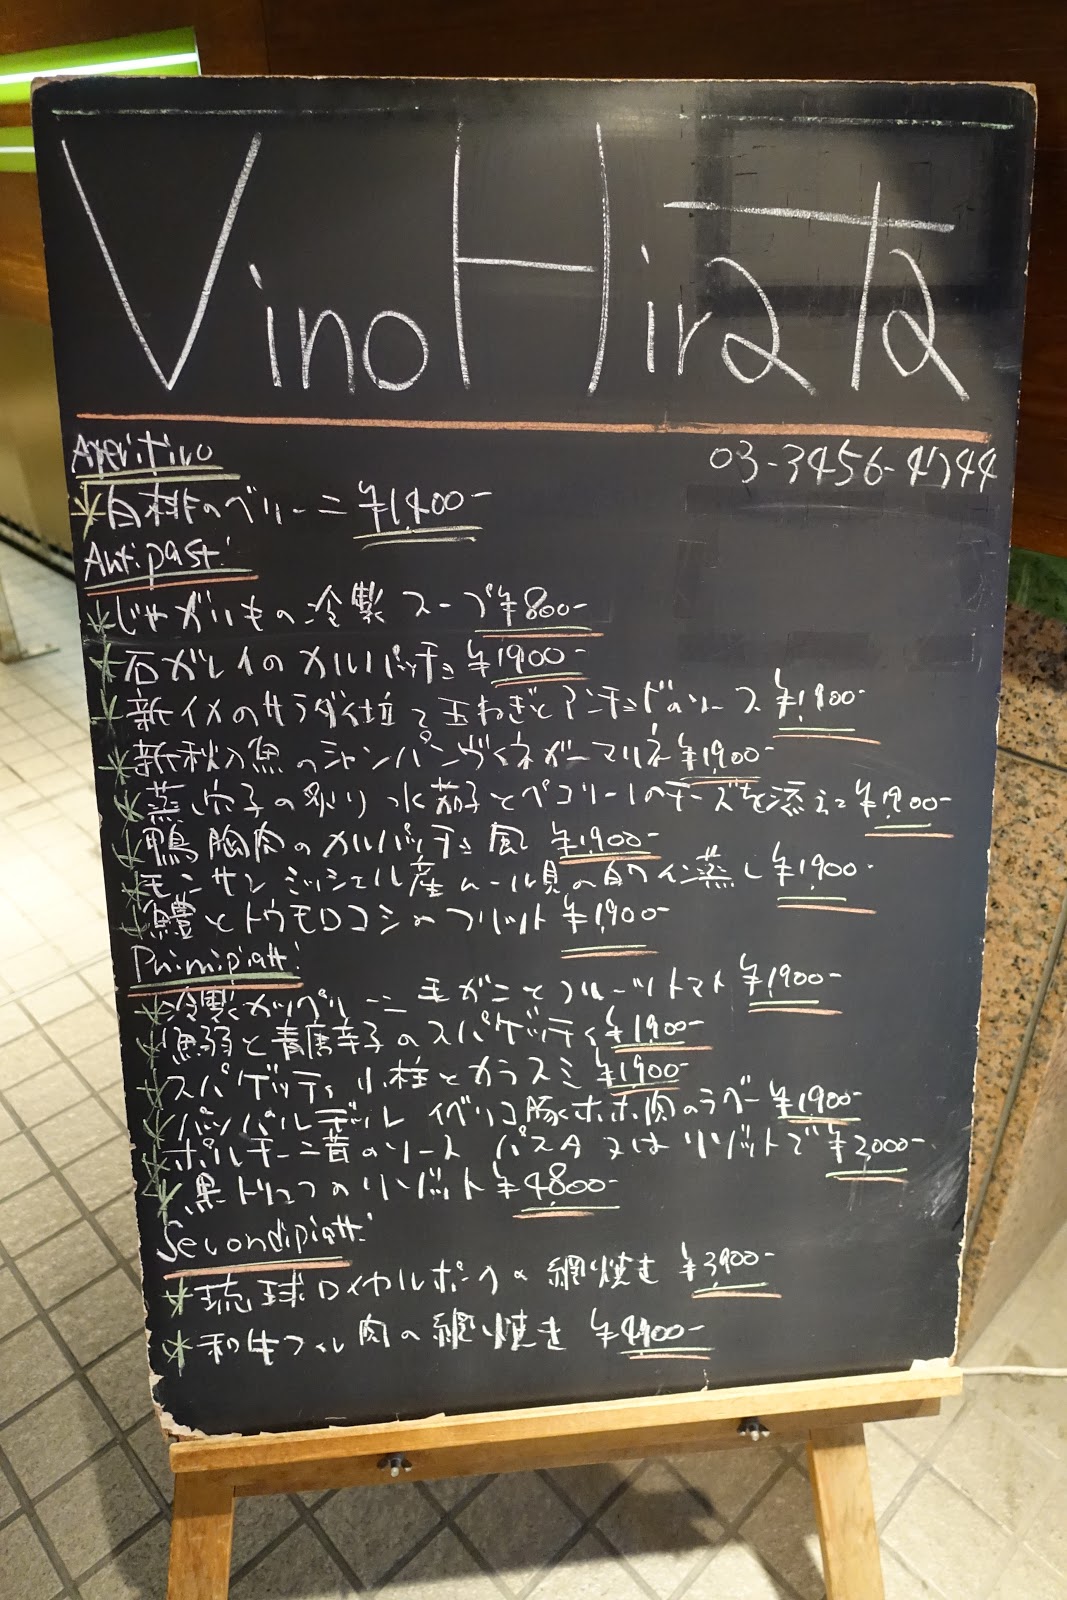 Vino Hirata
Aperitivo
03-3456-4744
白桃のベリーニ ¥1,400-
Antipasti
じゃがいもの冷製スープ ¥800-
石ガレイのカルパッチョ ¥1,900-
新イカのサラダ仕立て玉ねぎとアンチョビのソース ¥1,900-
新秋刀魚のシャンパンヴィネガーマリネ ¥1,900-
蒸し穴子の炙り 水茄子とペコリーノのチーズを添えて ¥1,900-
鴨胸肉のカルパッチョ風 ¥1,900-
モンサンミッシェル産ムール貝の白ワイン蒸し ¥1,900-
鱧とトウモロコシのフリット ¥1,900-
Primi piatti
冷製カッペリーニ 毛ガニとフルーツトマト ¥1,900-
魚弱と青唐辛子のスパゲッティ ¥1,900-
スパゲッティ 小柱とカラスミ ¥1,900-
パッパルデッレ イベリコ豚ホホ肉のラグー ¥1,900-
ポルチーニ茸のソース パスタ又はリゾットで ¥2,000-
黒トリュフのリゾット ¥4,800-
Secondi piatti
琉球ロイヤルポークの網焼き ¥3,900-
和牛フィレ肉の網焼き ¥4,900-